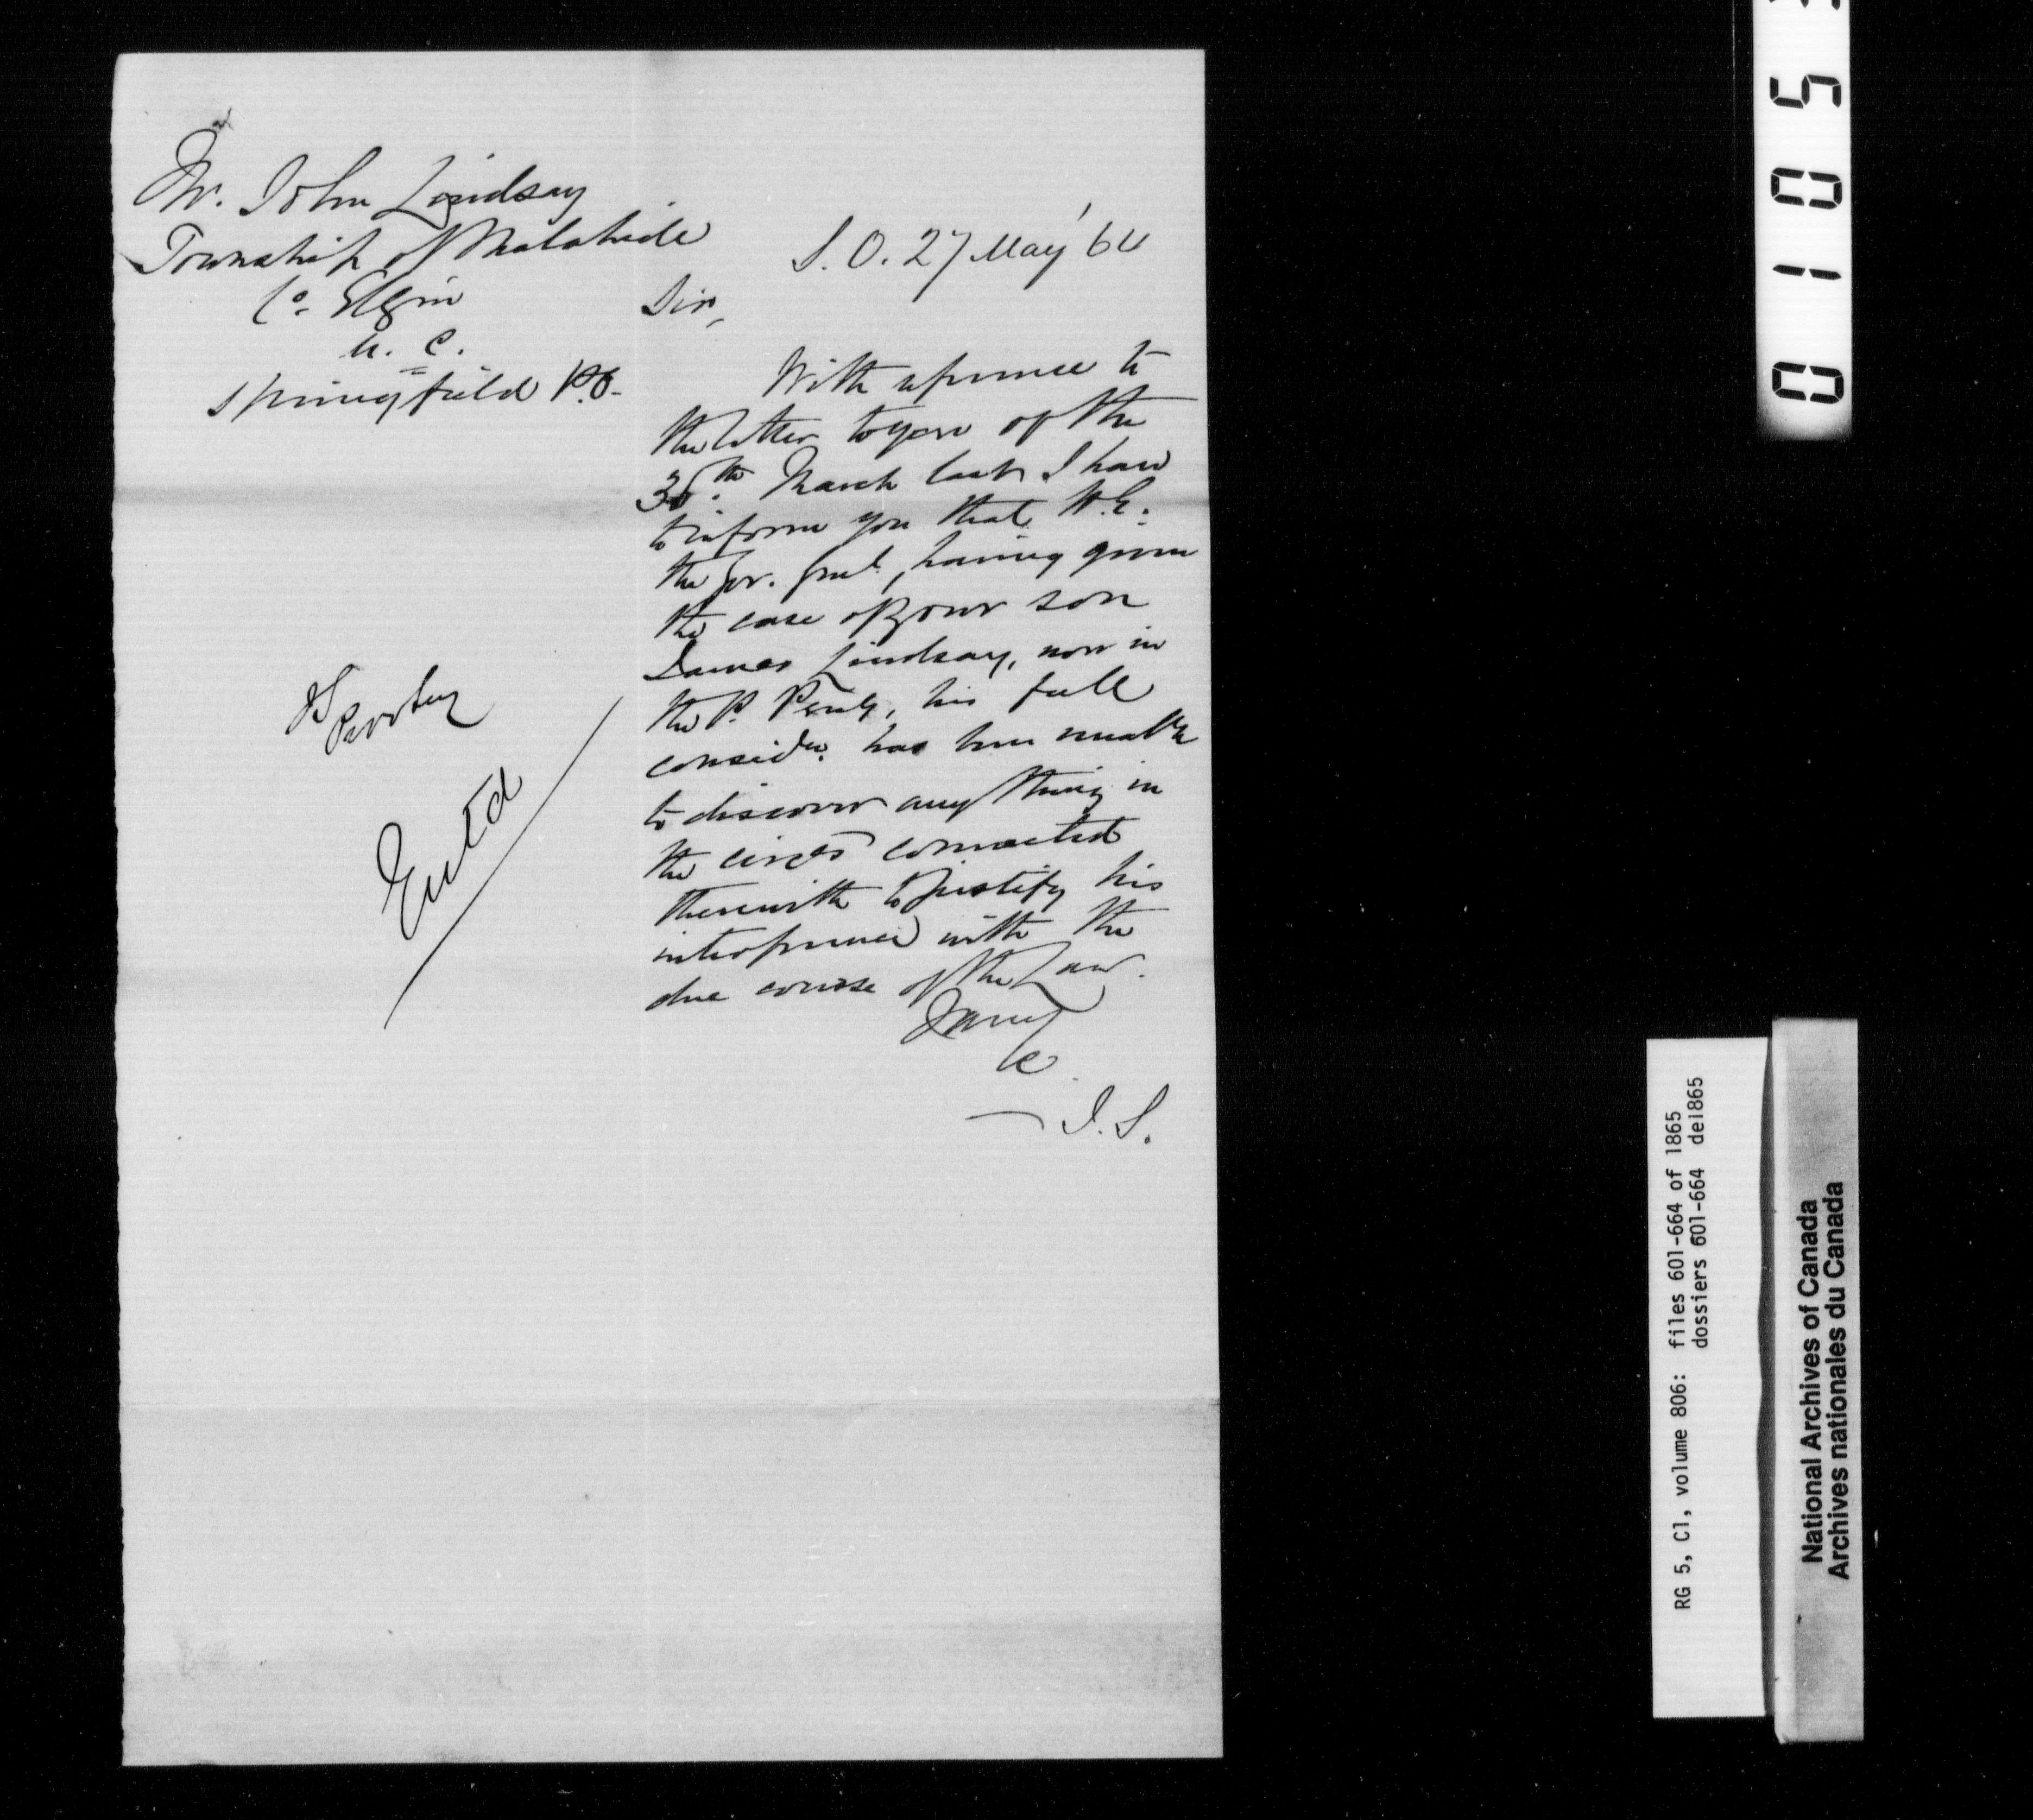 Mr. John Lindsay
Township of Malahide
Co. Elgin
U. C.
Springfield P.O.
S. O. 27 May '64
Sir,
With reference to
the letter to you of the
30th. March last I have
to inform you that H.E.
the Gov. Genl., having given
the case of your son
James Lindsay, now in
the P. Penty, his full
considn. has been unable
to discover anything in
the circes connected
therewith to justify his
interference with the
due course of the Law.
I have
&c
J.S.
Entd
0105
RG 5, C1, volume 806: files 601-664 of 1865
dossiers 601-664 de1865
National Archives of Canada
Archives nationales du Canada